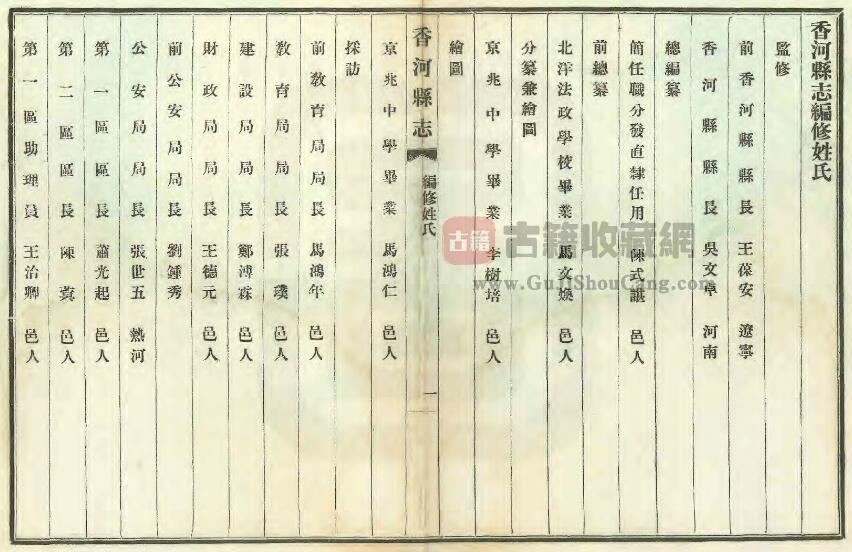 香河縣志編修姓氏
監修
前香河縣縣長 王葆安 遼寧
香河縣縣長 吳文卓 河南
總編纂
簡任職分發直隸任用 陳式諶 邑人
前總纂
北洋法政學校畢業 馬文煥 邑人
分纂兼繪圖
京兆中學畢業 李樹培 邑人
繪圖
香河縣志 編修姓氏 一
京兆中學畢業 馬鴻仁 邑人
採訪
前教育局局長 馬鴻年 邑人
教育局局長 張璞 邑人
建設局局長 鄭溥霖 邑人
財政局局長 王德元 邑人
前公安局局長 劉鍾秀
公安局局長 張世五 熱河
第一區區長 蕭光起 邑人
第二區區長 陳蓂 邑人
第一區助理員 王治卿 邑人
古籍 古籍收藏網
www.GuJiShouCang.com